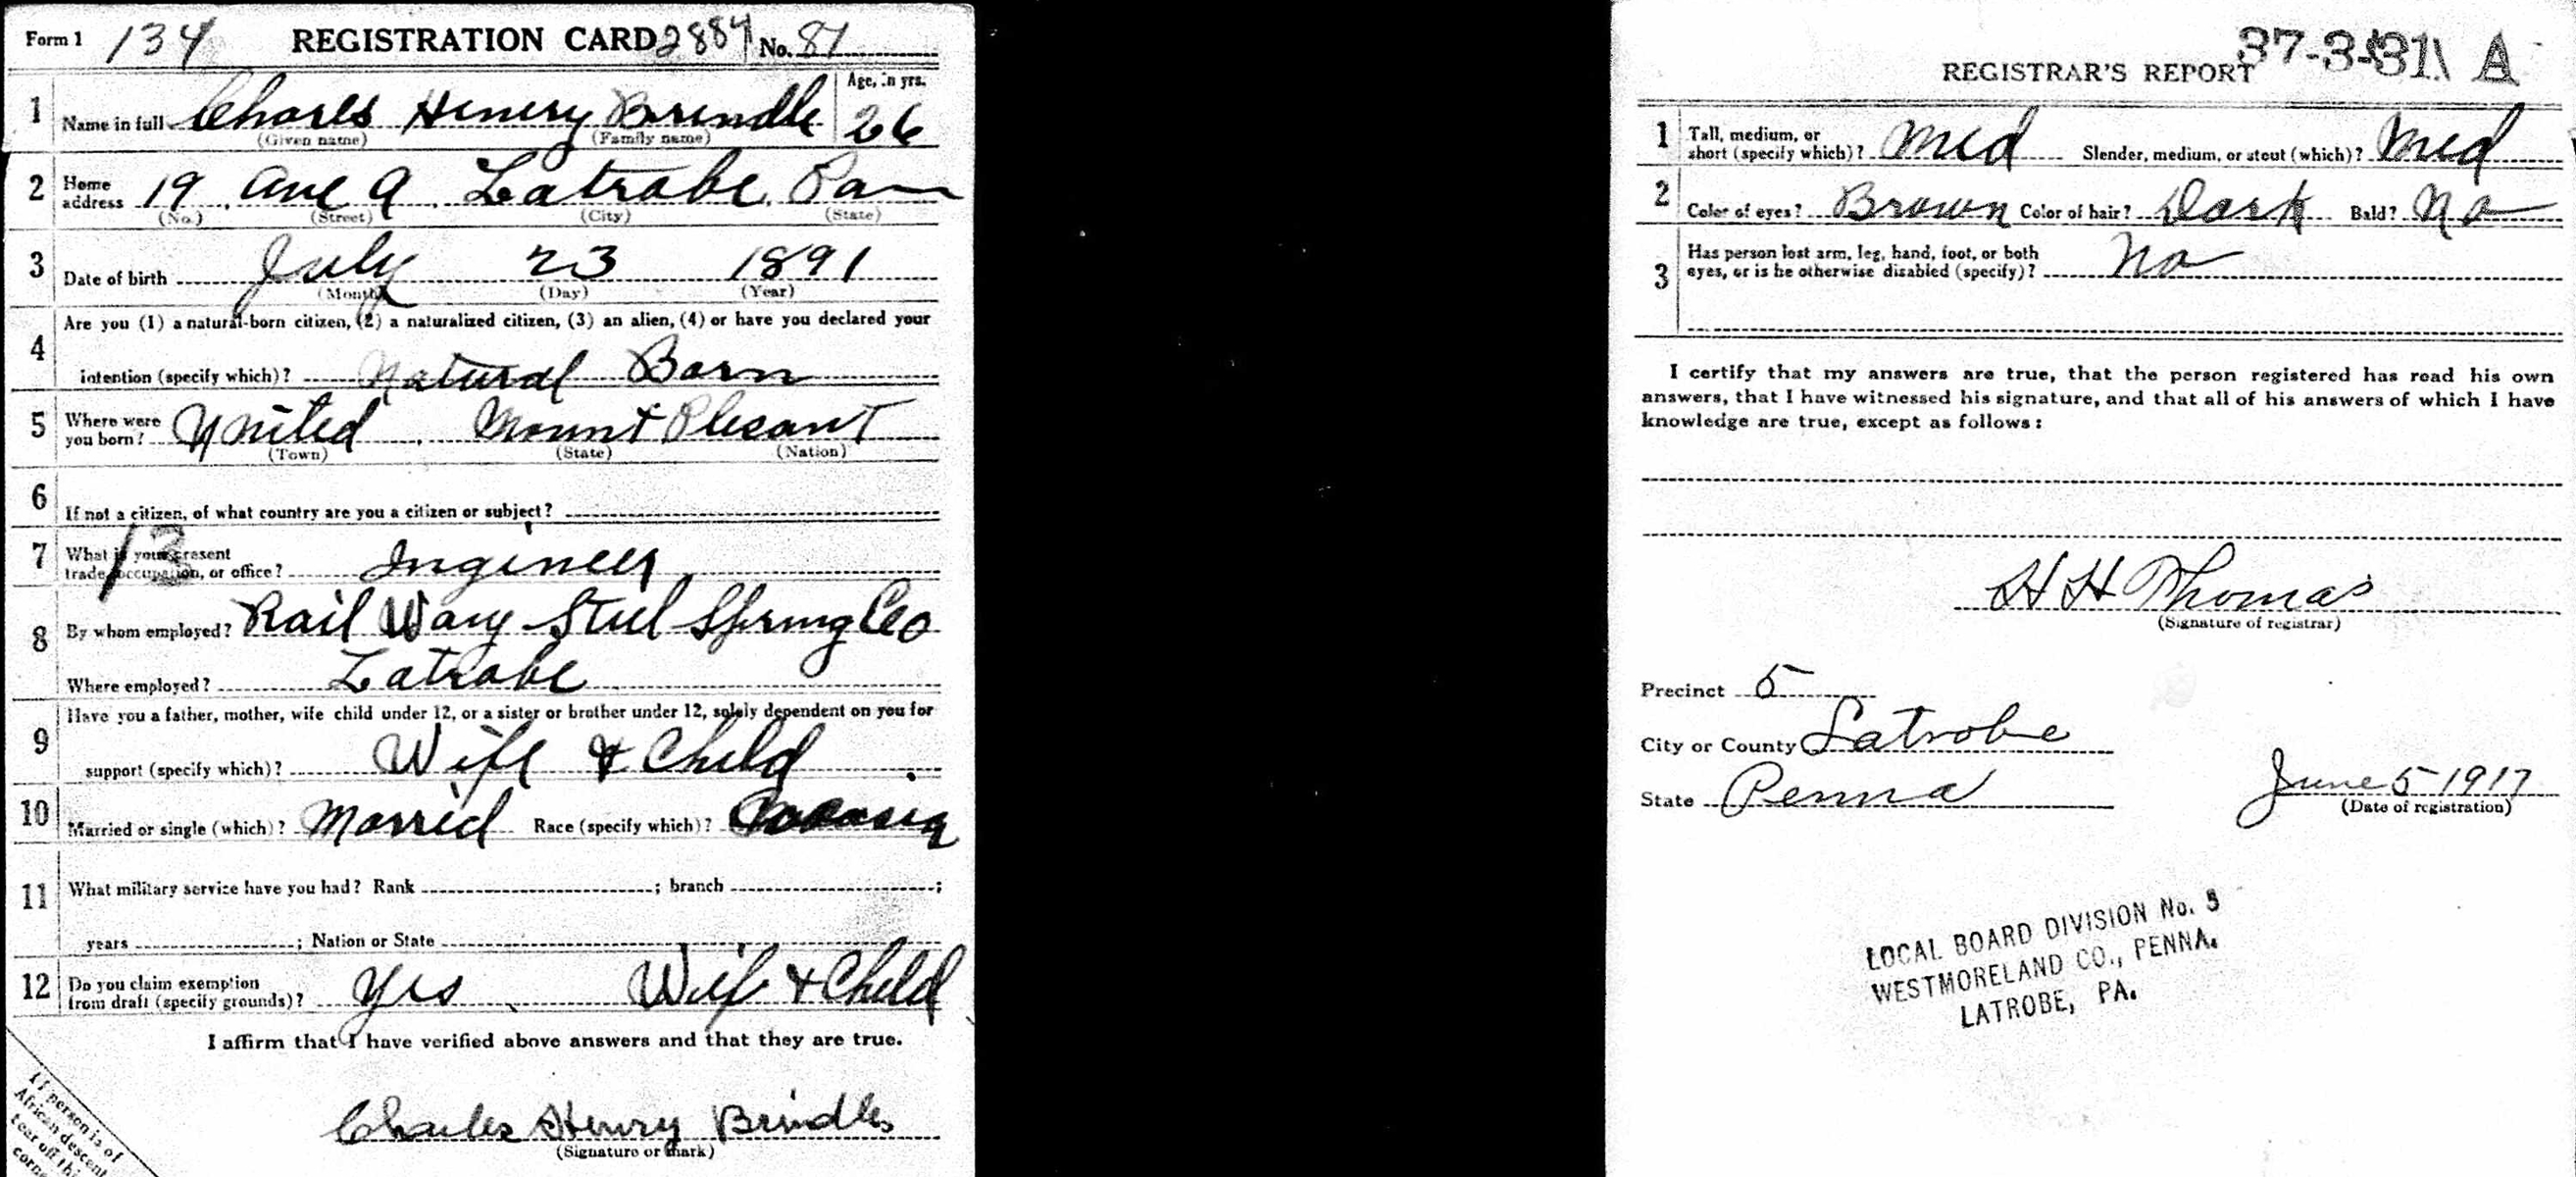 Form 1 134 REGISTRATION CARD 2884 No. 81
1 Name in full Chorls Hinery Brindle Age, in yrs. 26
(Given name) (Family name)
2 Home address 19 Ave A Latrobe Pa
(No.) (Street) (City) (State)
3 Date of birth July 23 1891
(Month) (Day) (Year)
4 Are you (1) a natural-born citizen, (2) a naturalized citizen, (3) an alien, (4) or have you declared your
intention (specify which)? Natural Born
5 Where were you born? United Mount Plesant
(Town) (State) (Nation)
6 If not a citizen, of what country are you a citizen or subject?
7 What is your present
trade, occupation, or office? Ingineer
13
8 By whom employed? Rail Way Steel Spring Co
Where employed? Latrobe
9 Have you a father, mother, wife child under 12, or a sister or brother under 12, solely dependent on you for
support (specify which)? Wife & Child
10 Married or single (which)? Morried Race (specify which)?
11 What military service have you had? Rank ; branch ;
years ; Nation or State
12 Do you claim exemption
from draft (specify grounds)? Yes Wife & Child
I affirm that I have verified above answers and that they are true.
Charles Henry Brindle
(Signature or mark)
If person is of
African descent
tear off this
corne
REGISTRAR'S REPORT 37-3-31 A
1 Tall, medium, or
short (specify which)? Med Slender, medium, or stout (which)? Med
2 Color of eyes? Brown Color of hair? Dark Bald? No
3 Has person lost arm, leg, hand, foot, or both
eyes, or is he otherwise disabled (specify)? No
I certify that my answers are true, that the person registered has read his own
answers, that I have witnessed his signature, and that all of his answers of which I have
knowledge are true, except as follows:
H H Thomas
(Signature of registrar)
Precinct 5
City or County Latrobe
State Penna
June 5 1917
(Date of registration)
LOCAL BOARD DIVISION No. 5
WESTMORELAND CO., PENNA.
LATROBE, PA.